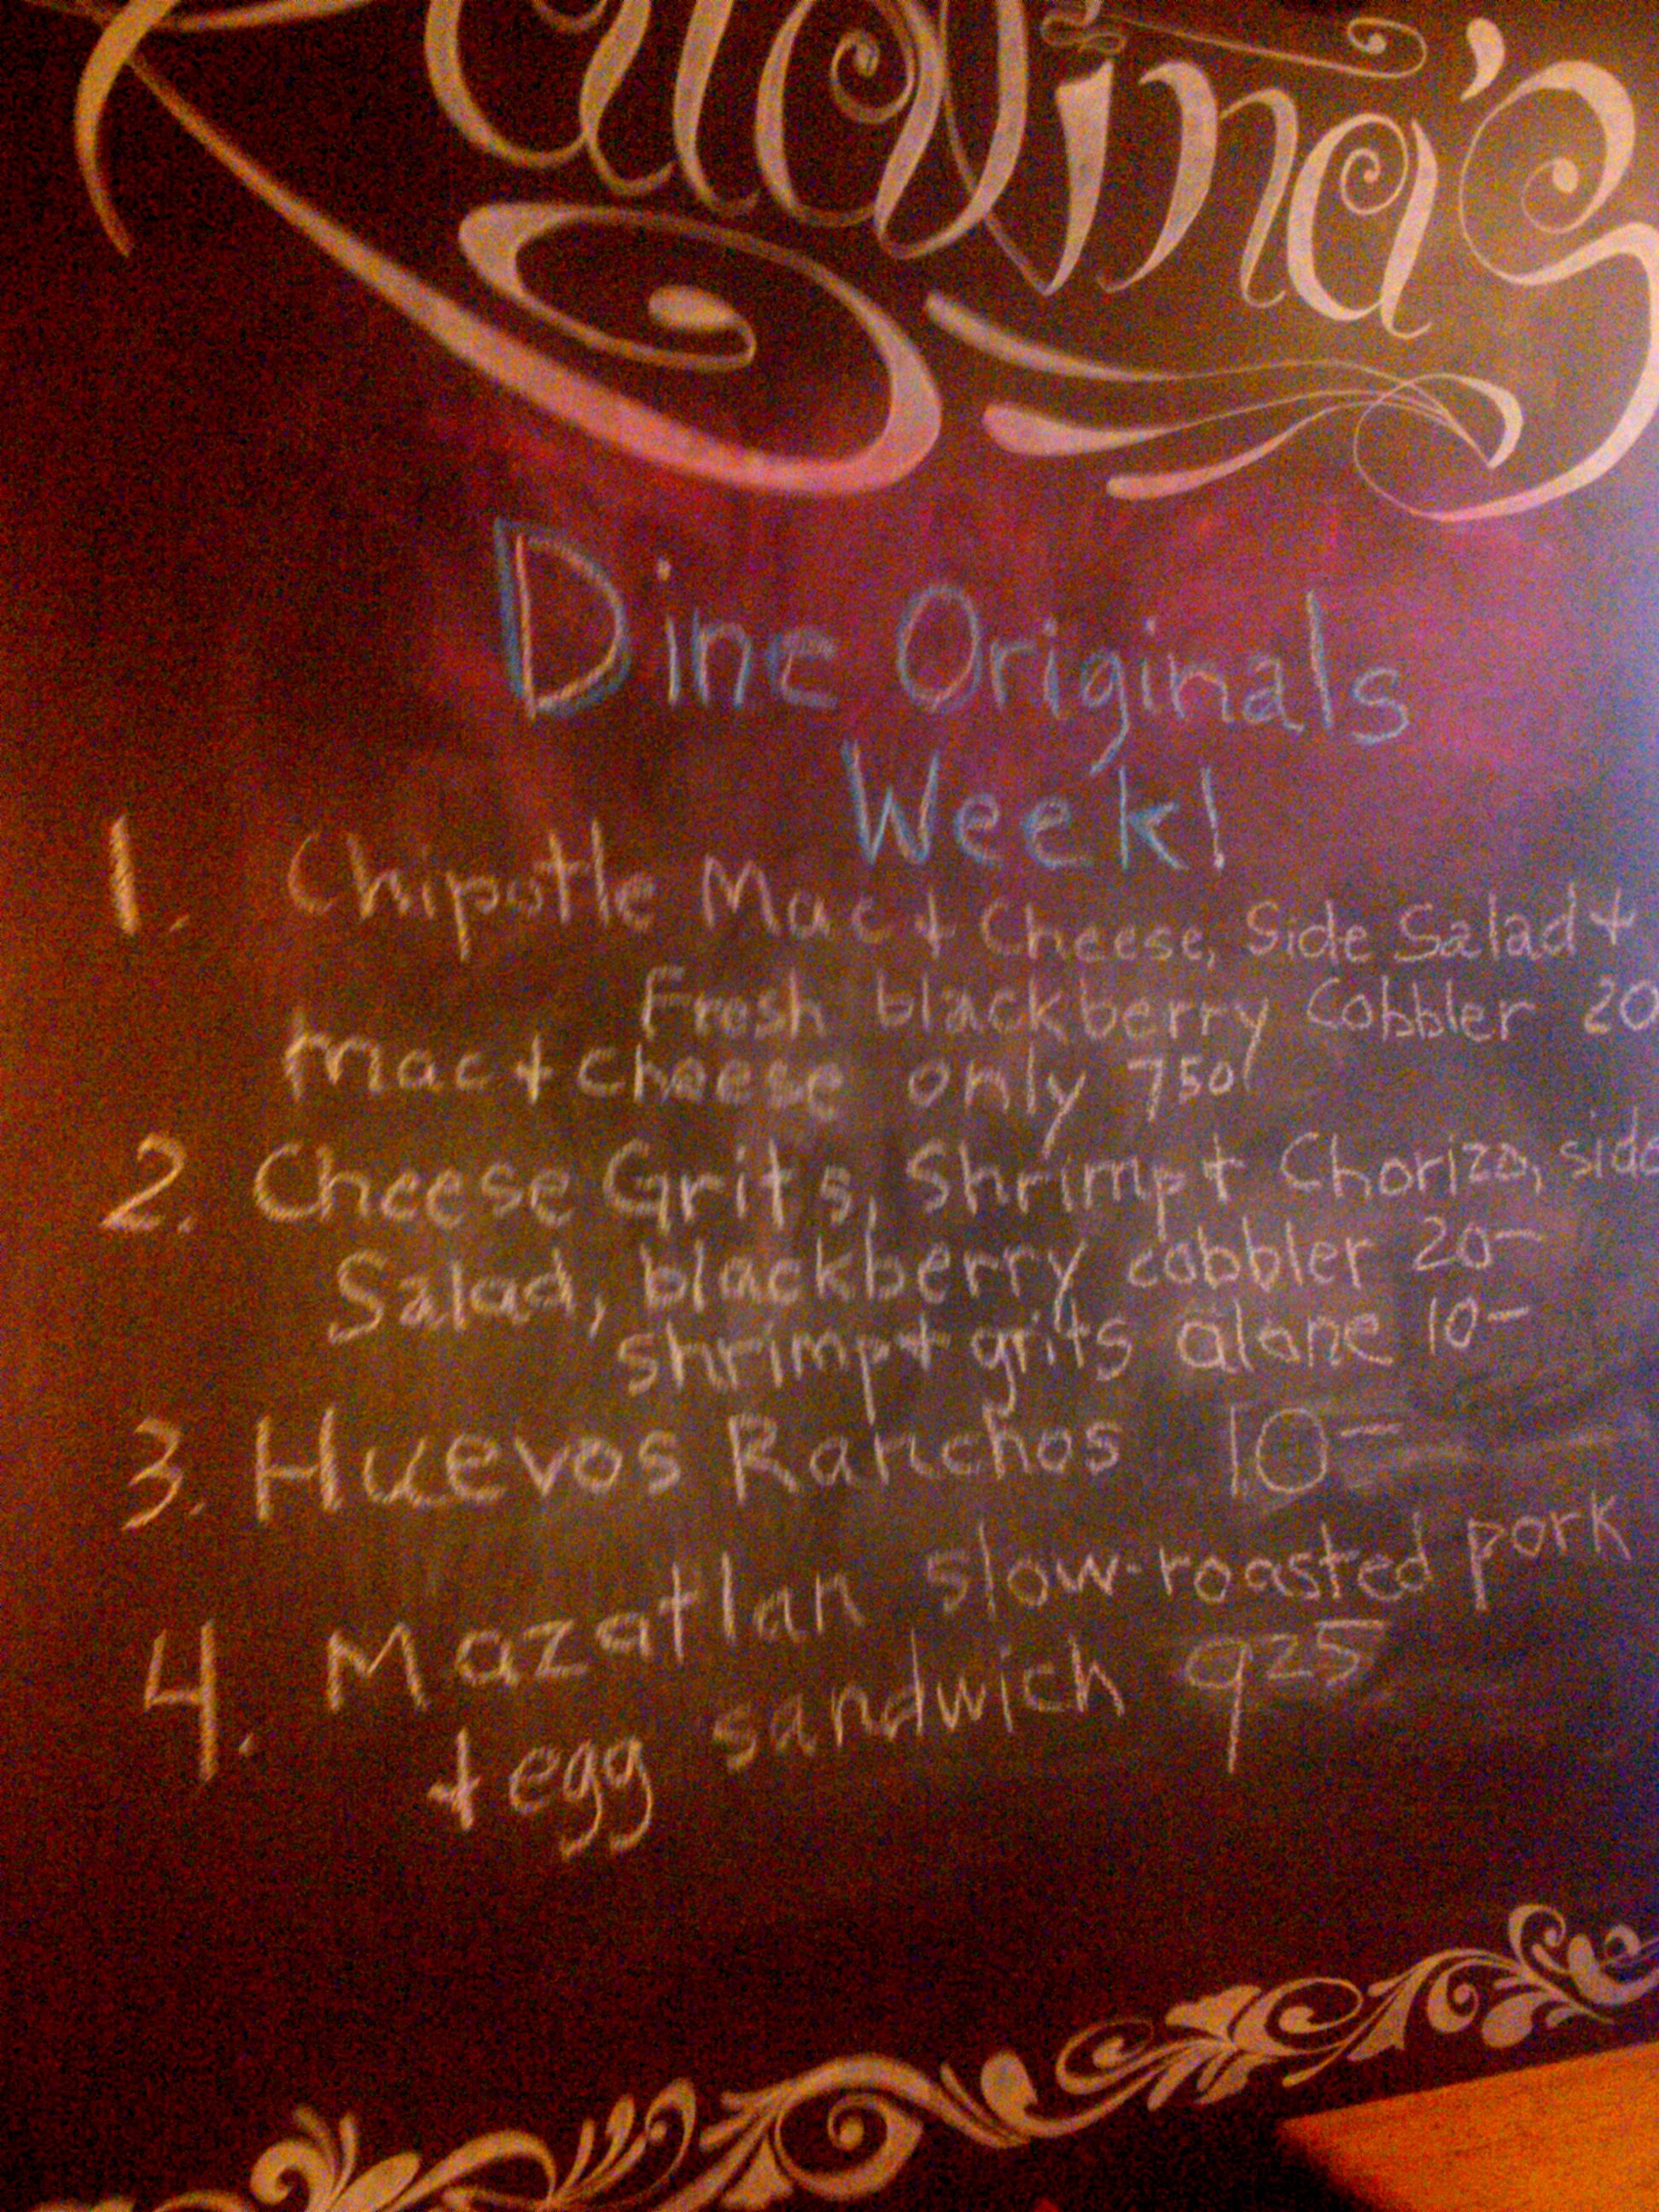 Katalina's
Dine Originals
Week!
1. Chipotle Mac + Cheese, Side Salad +
Fresh blackberry Cobbler 20
Mac + cheese only 750
2. Cheese Grits, Shrimp + Chorizo, side
Salad, blackberry cobbler 20-
shrimp + grits alone 10-
3. Huevos Ranchos 10-
4. Mazatlan slow-roasted pork
+ egg sandwich 925